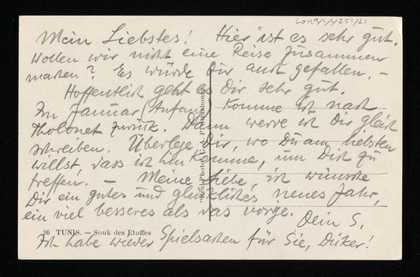 Mein Liebstes! Hier ist es sehr gut.
Wollen wir nicht eine Reise zusammen
machen? Es würde Dir auch gefallen. –
Hoffentlich geht es Dir sehr gut.
Im Januar, Anfang komme ich nach
Tholonet zurück. Dann werde ich Dir gleich
schreiben. Überlege Dir, wo Du am liebsten
willst, dass ich hin komme, um Dich zu
treffen. – Meine Liebe, ich wünsche
Dir ein gutes und glückliches neues Jahr,
ein viel besseres als das vorige.
Dein S.
26 TUNIS. — Souk des Etoffes
Ich habe wieder Spielsachen für Sie,